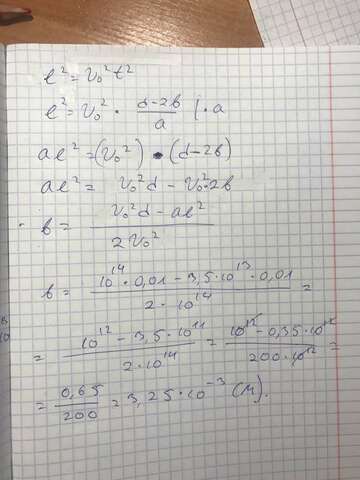 ℓ² = v₀²t²
ℓ² = v₀² · (d-2b)/a | · a
aℓ² = (v₀²) · (d-2b)
aℓ² = v₀²d - v₀²·2b
b = (v₀²d - aℓ²)/(2v₀²)
b = (10¹⁴ · 0,01 - 3,5·10¹³ · 0,01)/(2·10¹⁴) =
= (10¹² - 3,5·10¹¹)/(2·10¹⁴) = (10¹² - 0,35·10¹²)/(200·10¹²) =
= 0,65/200 = 3,25·10⁻³ (м).